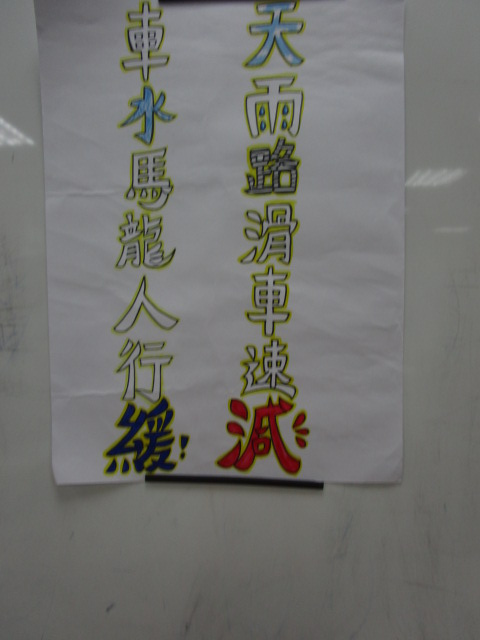 天雨路滑車速減
車水馬龍人行緩!